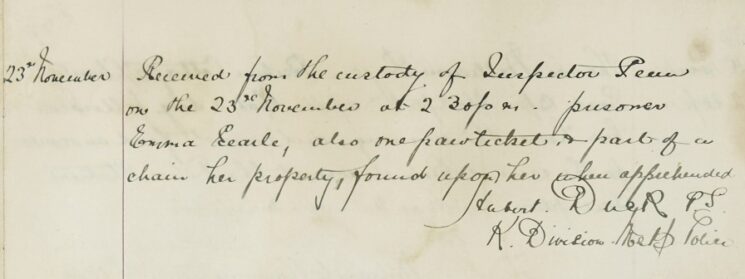 23rd November Received from the custody of Inspector Penn
on the 23rd November at 2 30 pm. prisoner
Emma Eearle, also one pawnticket & part of a
chain her property, found upon her when apprehended
Hubert. Duck P.S.
K. Division. Met. Police